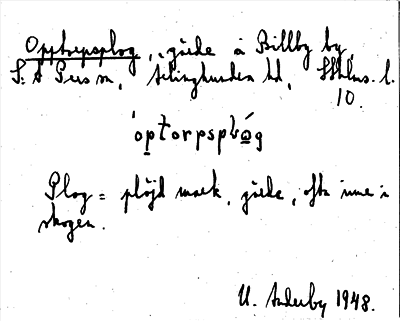 Opptorpsplog, gärde å Billby by,
S:t Pers sn, Seminghundra hd, Sthlms. l.
10.
óptorpsplòg
Plog = plöjd mark, gärde, ofta inne i
skogen.
U. Anderby 1948.